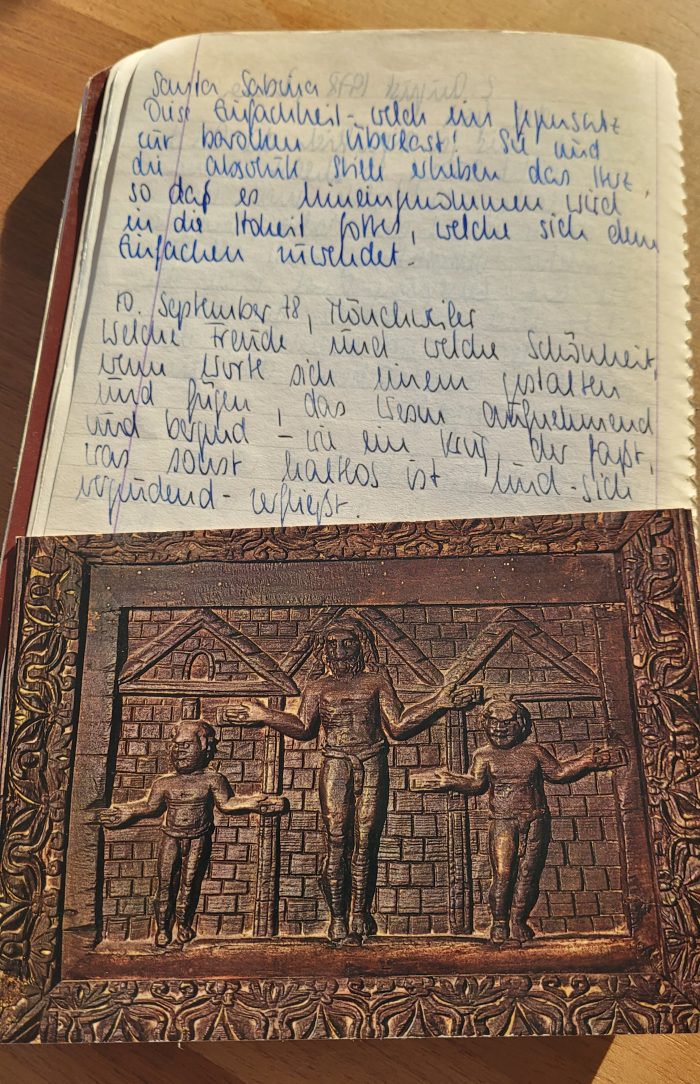 Santa Sabina
Diese Einfachheit - welch ein Gegensatz
zur barocken Überlast! Sie und
die absolute Stille erheben das Herz,
so daß es hineingenommen wird
in die Hoheit Gottes, welche sich dem
Einfachen zuwendet.
10. September 78, Mönchweiler
Welche Freude und welche Schönheit,
wenn Worte sich einem gestalten
und fügen, das Wesen aufnehmend
und bergend - wie ein Krug, der faßt,
was sonst haltlos ist und - sich
vergeudend - verfließt.